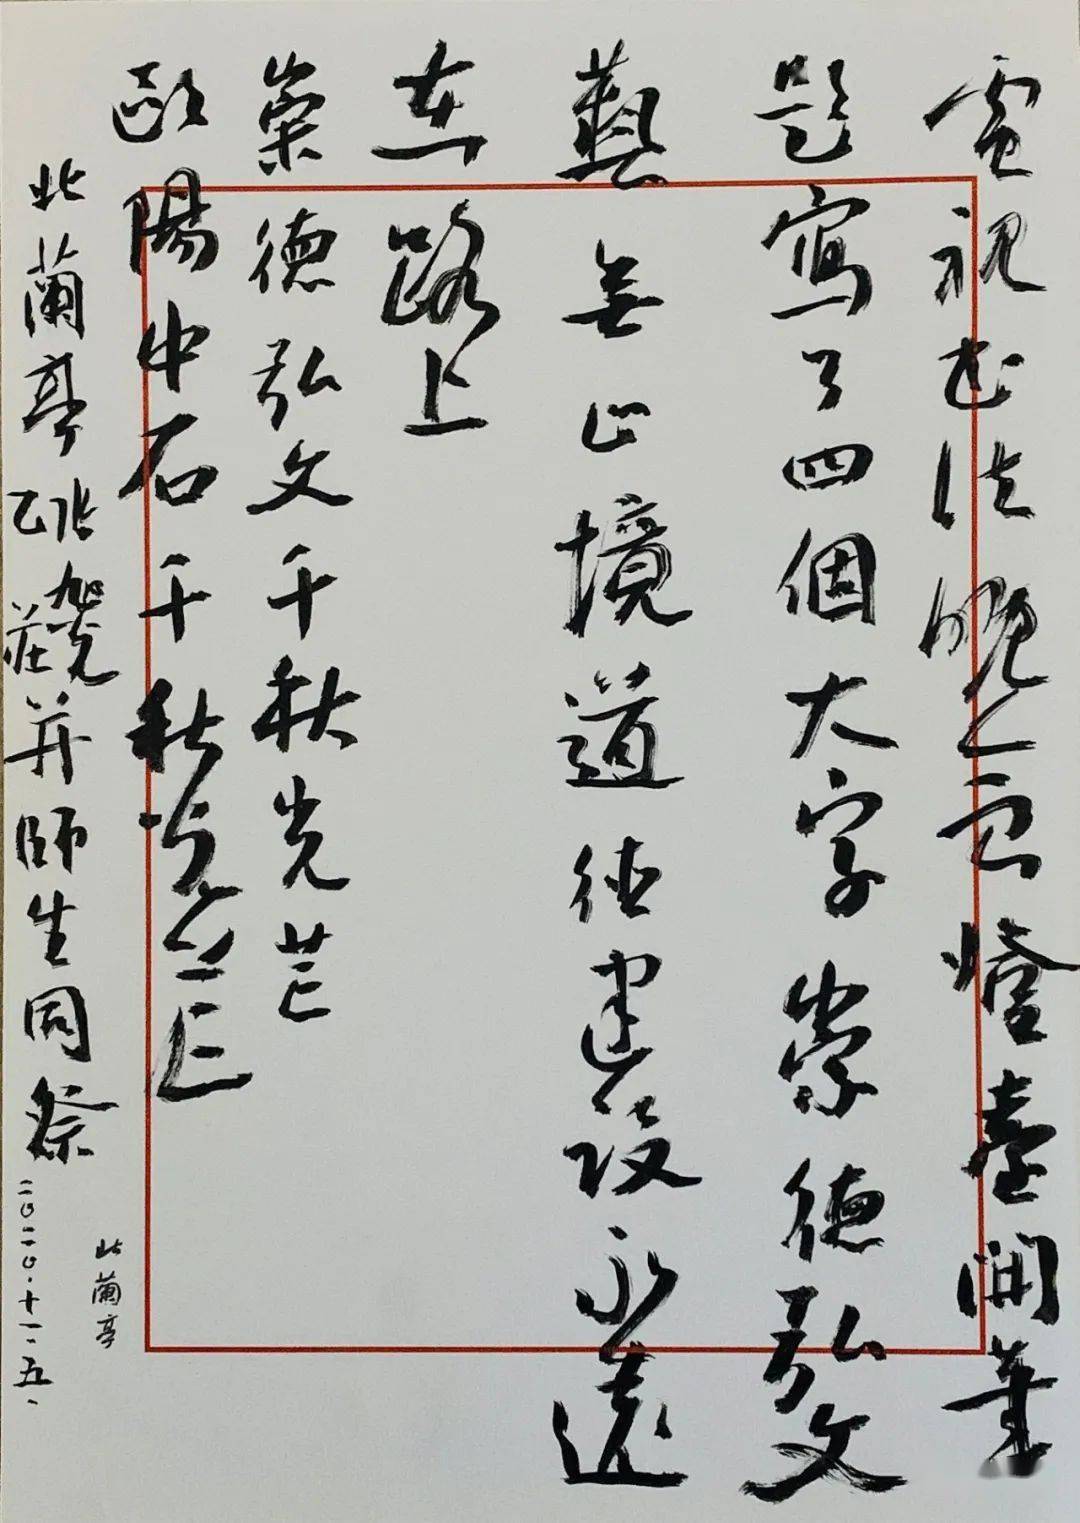 電視書法晚會燈臺開筆
題寫了四個大字崇德弘文
藝無止境道德建設永遠
在路上
崇德弘文千秋光芒
歐陽中石千秋
北蘭亭張旭光
莊并師生同祭
二〇二〇.十一.五.
北蘭亭